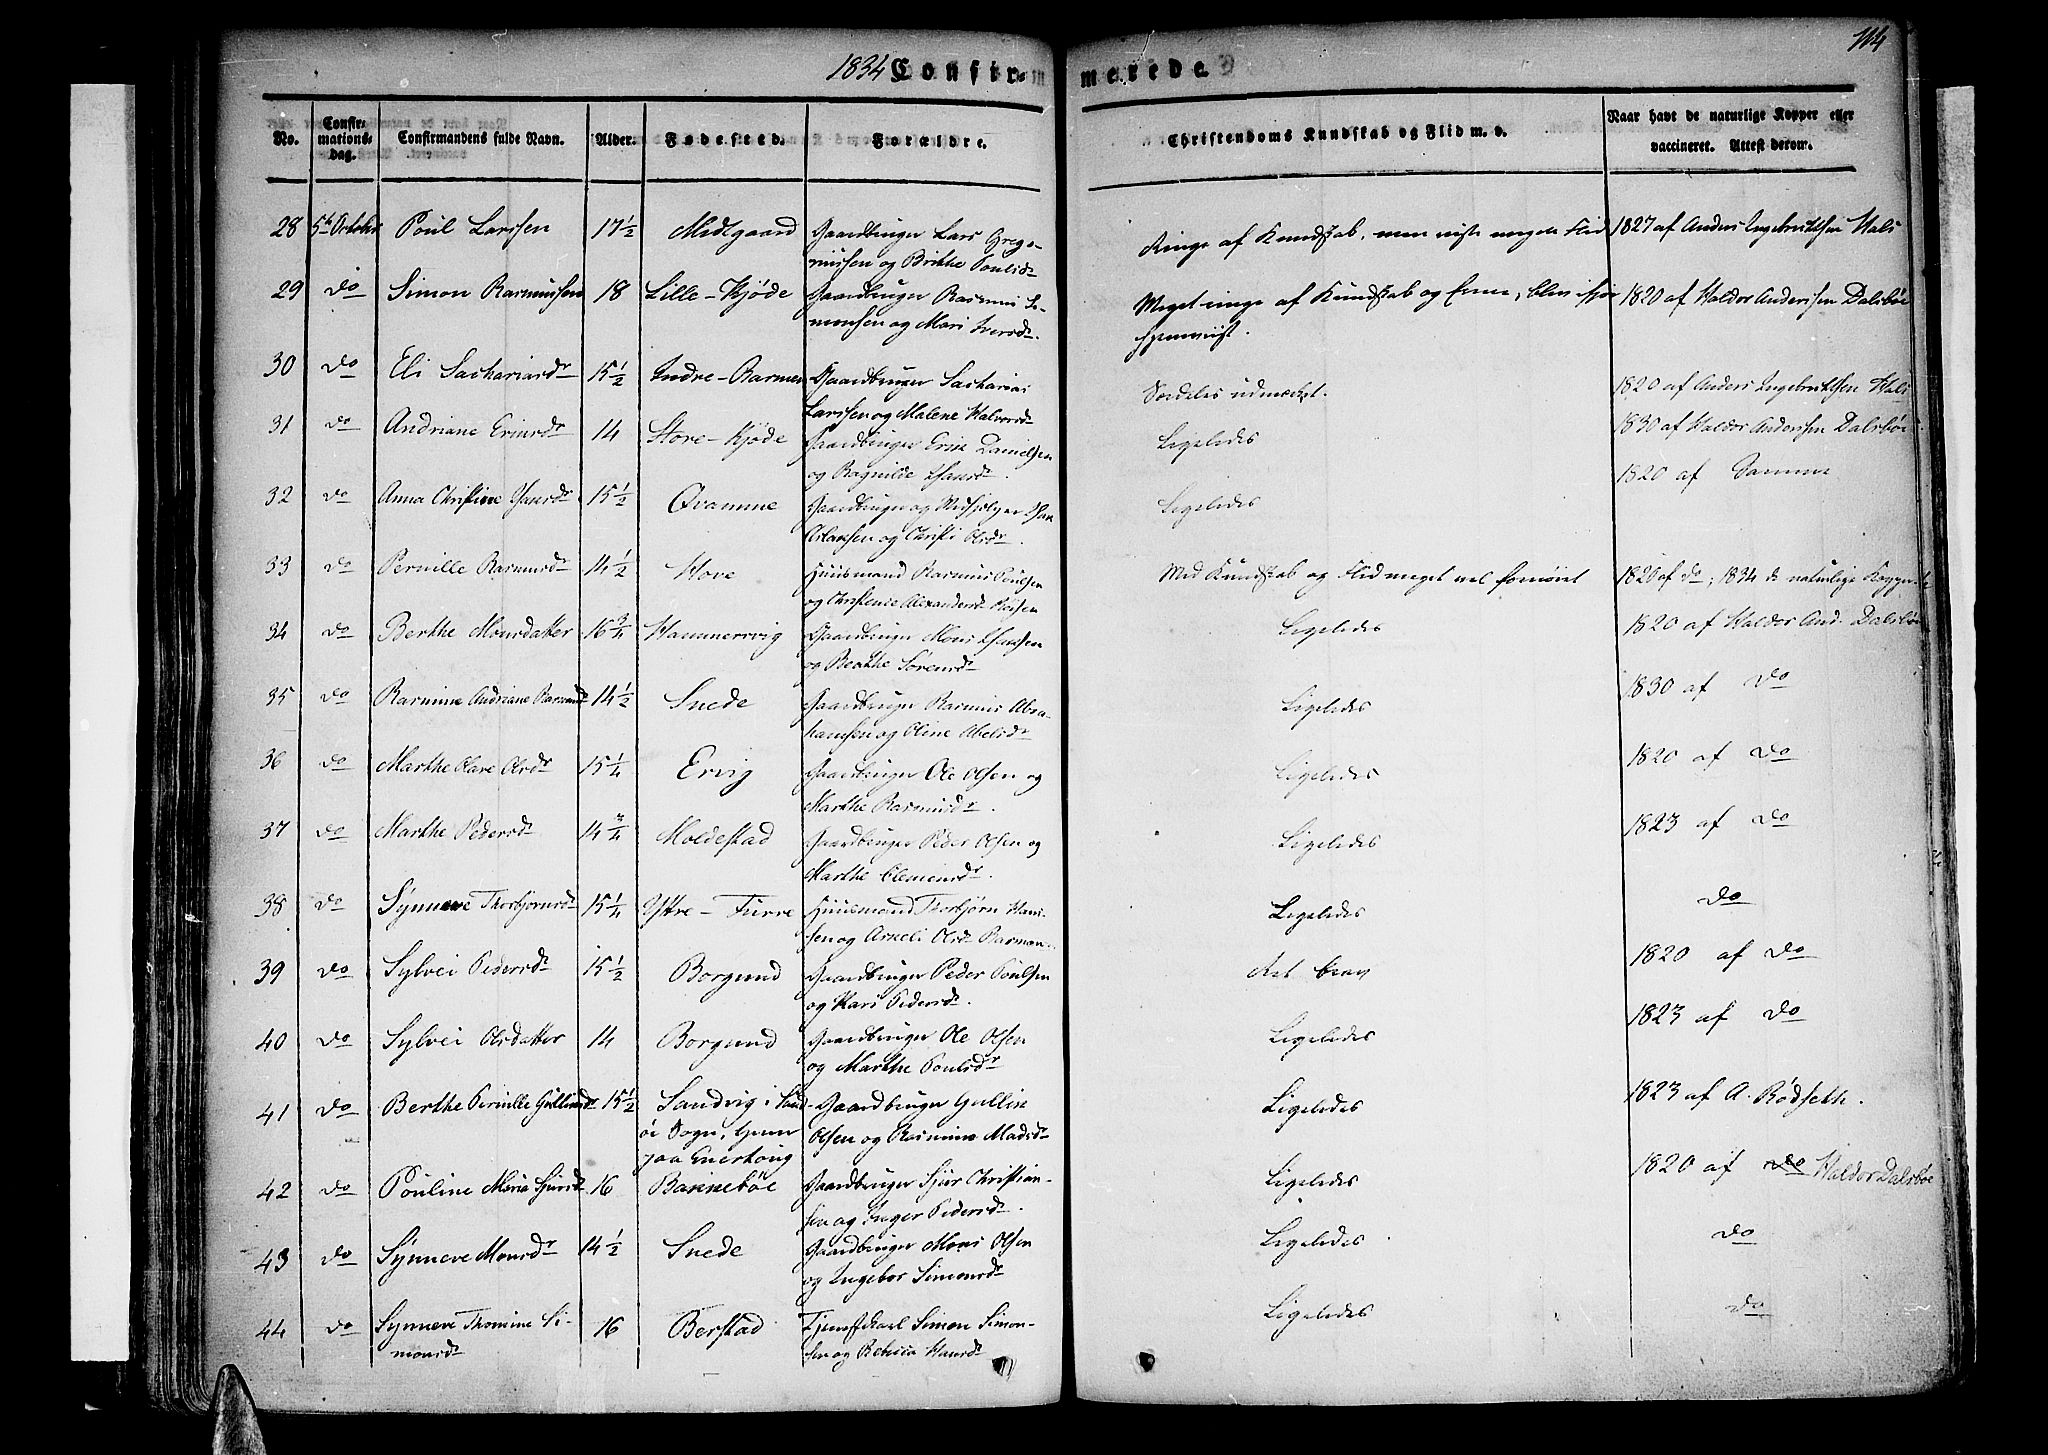 1834 Confir- merede. 114
No.
Confir-
mations-
dag.
Confirmandens fulde Navn.
Alder.
Fødested.
Forældre.
Christendoms Kundskab og Flid m. v.
Naar havt de naturlige Kopper eller
vaccineret. Attest derom.
28 5te October Poul Larssen 17½ Midtgaard Gaardbruger Lars Grego-
russen og Brithe Poulsdr
Ringe af Kundskab, men viste megen Flid 1827 af Anders Ingebrethsen Hals
29 do Simon Rasmussen 18 Lille-Kjøde Gaardbruger Rasmus Si-
monsen og Mari Iversdr
Meget ringe af Kundskab og Evne, blev 1820 af Haldor Anderssen Dalsbøe
30 do Eli Sachariasdr 15½ Indre-Barmen Gaardbruger Sacharias
Larssen og Malene Halvorsdr
Særdeles udmærket. 1820 af Anders Ingebrethsen Hals
31 do Andriane Erinsdr 14 Store-Kjøde Gaardbruger Erik Danielsen
og Ragnilde Hansdr.
Ligeledes 1830 af Haldor Anderssen Dalsbøe
32 do Anna Christine 15½ Qvamme Gaardbruger og Medhjelper
og Christi Olsdr.
Ligeledes 1820 af Samme
33 do Pernille Rasmusdr 14½ Hove Huusmand Rasmus Poulsen
og Christence Alexandersdr
Med Kundskab og Flid meget vel fornøiet 1820 af do; 1834 de naturlige Kopper
34 do Berthe Monsdatter 16¾ Hammersvig Gaardbruger Mons Hanssen
og Beathe Sørensdr
Ligeledes 1820 af Haldor And. Dalsbøe
35 do Rasmine Andriane Rasmusdr 14½ Snede Gaardbruger Rasmus Abra-
hamsen og Oline Abelsdr
Ligeledes 1830 af do
36 do Marthe Olave Olsdr 15¼ Ervig Gaardbruger Ole Olsen og
Marthe Rasmusdr.
Ligeledes 1820 af do
37 do Marthe Pedersdr 14¾ Moldestad Gaardbruger Peder Olsen og
Marthe Clemensdr.
Ligeledes 1823 af do
38 do Synneve Thorbjørnsdr 15¼ Ytre-Furre Huusmand Thorbjørn Hans-
sen og Arneli Olsdr Barmen
Ligeledes do
39 do Sylvei Pedersdr 15½ Borgund Gaardbruger Peder Poulsen
og Kari Pedersdr.
Ret brav 1820 af do
40 do Sylvei Olsdatter 14 Borgund Gaardbruger Ole Olsen
og Marthe Poulsdr
Ligeledes 1823 af do
41 do Berthe Pernille Gulliksdr 15½ Sandvig i Sand-
øe Sogn, hjemme
paa Enerhoug
Gaardbruger Gullik
Olsen og Rasmine Madsdr
Ligeledes 1823 af A. Rødseth.
42 do Pouline Maria Sjursdr 16 Barmebøe Gaardbruger Sjur Christian-
sen og Inger Pedersdr.
Ligeledes 1820 af do Haldor Dalsbøe
43 do Synneve Monsdr 14½ Snede Gaardbruger Mons Olsen
og Ingebor Simonsdr
Ligeledes do
44 do Synneve Thomine Si-
monsdr
16 Berstad Tjenestkarl Simon Simon-
sen og Rebecca Hansdr
Ligeledes do